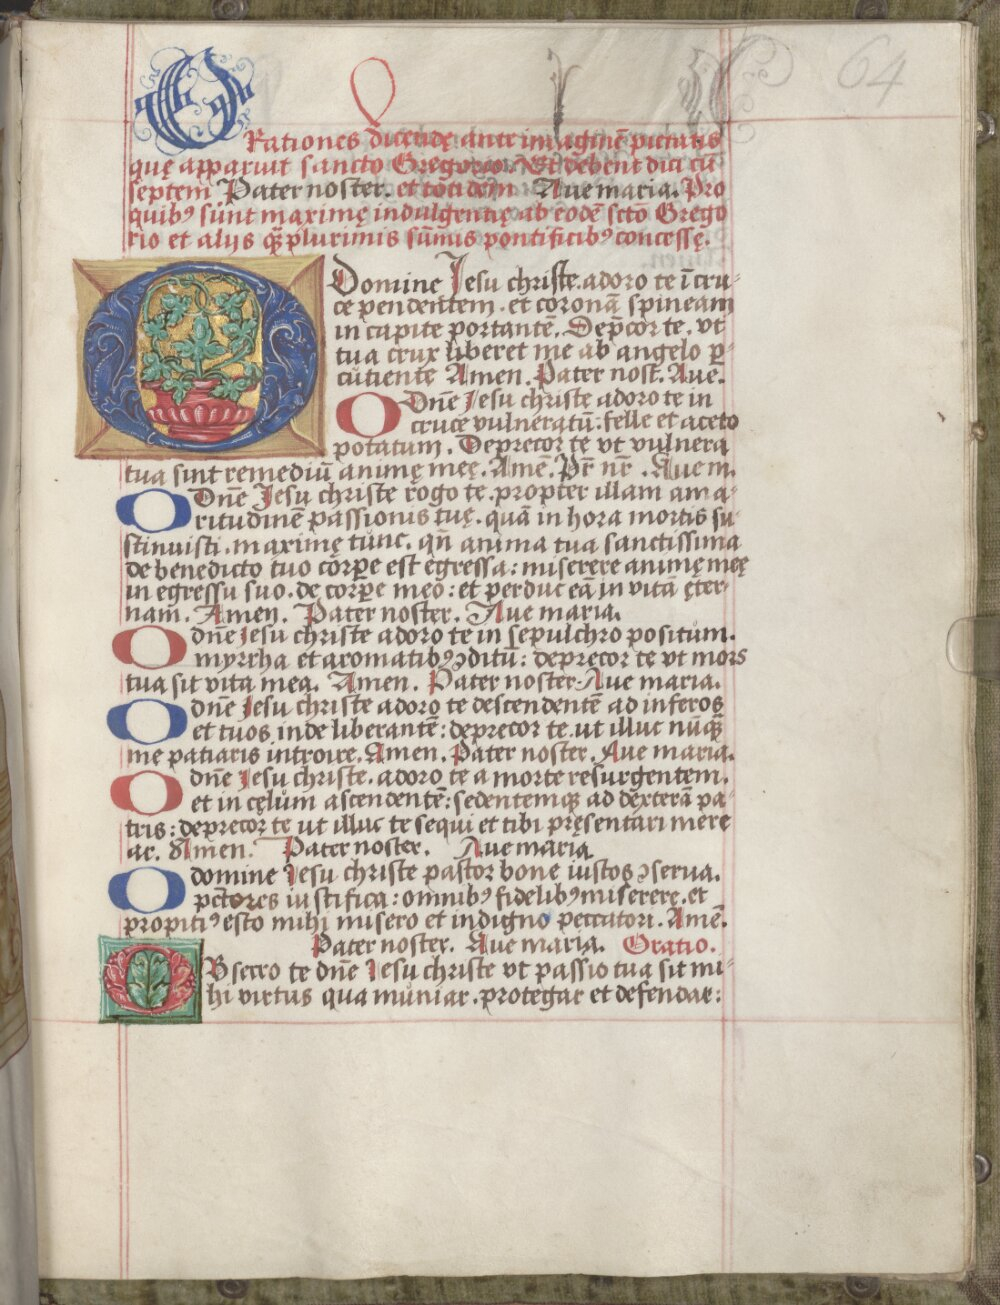 64
ORationes dicendę ante imaginē pietatis
quę apparuit sancto Gregorio. Et debent dici cū
septem Pater noster. et totidem Aue maria. Pro
quibꝰ sunt maximę indulgentię ab eodē sctō Grego
rio et alijs q̄ꝫ plurimis sum̄is pontificibꝰ concessę.
O Domine Jesu christe. adoro te ī cru-
ce pendentem. et coronā spineam
in capite portantē. Dep̄cor te, vt
tua crux liberet me ab angelo ꝑ-
cutiente Amen. Pater nost̄. Aue.
O Dn̄e Jesu christe adoro te in
cruce vulneratū: felle et aceto
potatum. Deprecor te vt vulnera
tua sint remediū animę meę. Amē. Pr̄ nr̄. Aue m.
O Dn̄e Jesu christe rogo te. propter illam ama-
ritudinē passionis tuę. quā in hora mortis su-
stinuisti. maximę tunc. qn̄ anima tua sanctissima
de benedicto tuo corꝑe est egressa: miserere animę meę
in egressu suo. de corꝑe meo: et perduc eā in vitā ęter-
nam. Amen. Pater noster. Aue maria.
O dn̄e Jesu christe adoro te in sepulchro positum.
myrrha et aromatibꝰ ꝯditū: deprecor te vt mors
tua sit vita mea. Amen. Pater noster. Aue maria.
O dn̄e Jesu christe adoro te descendentē ad inferos
et tuos inde liberantē: deprecor te. ut illuc nūq̄ꝫ
me patiaris introire. Amen. Pater noster. Aue maria.
O dn̄e Jesu christe. adoro te a morte resurgentem.
et in cęlum ascendentē: sedentemqꝫ ad dexterā pa-
tris: deprecor te ut illuc te sequi et tibi pręsentari mere
ar. Amen. Pater noster. Aue maria
O domine Jesu christe pastor bone iustos ꝯserua.
pctōres iustifica: omnibꝰ fidelibꝰ miserere. et
propitiꝰ esto mihi misero et indigno peccatori. Amē.
Pater noster. Aue maria. Oratio.
OBsecro te dn̄e Jesu christe vt passio tua sit mi-
hi virtus qua muniar. protegar et defendar: